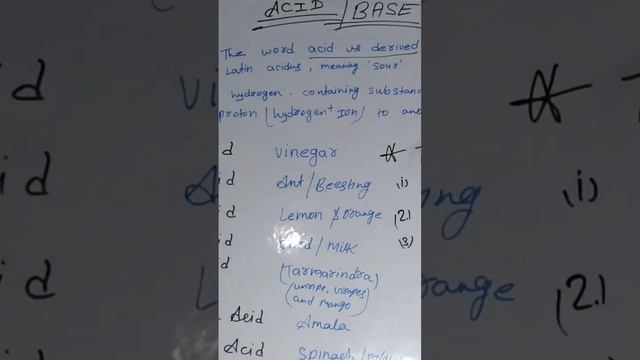 ACID / BASE
The word acid is derived
Latin acidus, meaning 'sour'
hydrogen - containing substanc
proton (hydrogen+ Ion) to ano
id vinegar
id Ant/Beesting (i)
id Lemon & Orange (2.)
id Curd/Milk (3)
id (Tarmarindra)
(unripe, Grapes
and Mango)
Acid Amala
Acid Spinach/